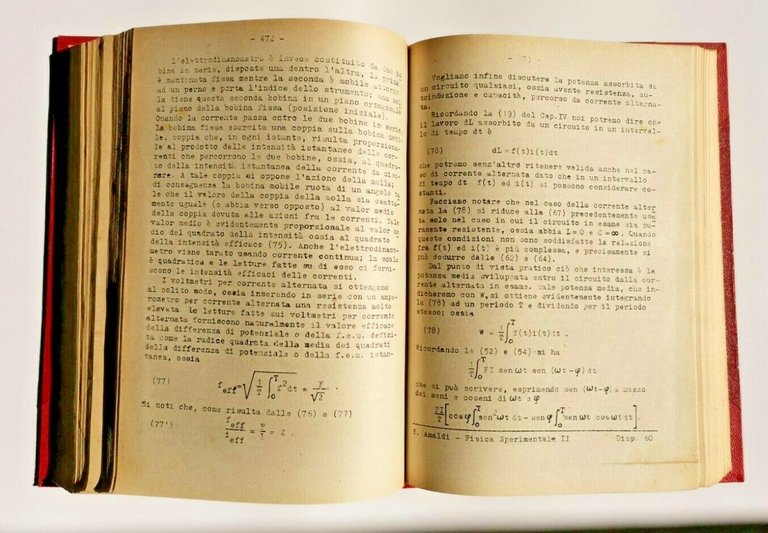 - 472 -
L'elettrodinamometro è invece costituito da due bo
bine in serie, disposte una dentro l'altra, la prima
è mantenuta fissa mentre la seconda è mobile attorno
ad un perno e porta l'indice dello strumento; una mol
la tiene questa seconda bobina in un piano ortogonale
al piano della fissa (posizione iniziale).
Quando la corrente passa entro le due bobine in serie,
la bobina fissa esercita una coppia sulla bobina mobi
le, coppia che, in ogni istante, risulta proporziona
le al prodotto delle intensità istantanee delle cor-
renti che percorrono le due bobine, ossia, al quadra-
to della intensità istantanea della corrente da misu-
rare. A tale coppia si oppone l'azione della molla;
di conseguenza la bobina mobile ruota di un angolo ta
le che il valore della coppia della molla sia esatta
mente uguale (e abbia verso opposto) al valor medio
della coppia dovuta alle azioni fra le correnti. Tale
valor medio è evidentemente proporzionale al valor me
dio del quadrato della intensità ossia al quadrato
della intensità efficace (75). Anche l'elettrodinamo-
metro viene tarato usando corrente continua; la scala
è quadratica e le letture fatte su di esso ci forni-
scono le intensità efficaci delle correnti.
I voltmetri per corrente alternata si ottengono
al solito modo, ossia inserendo in serie con un ampe-
rometro per corrente alternata una resistenza molto
elevata. Le letture fatte sui voltmetri per corrente
alternata forniscono naturalmente il valore efficace
della differenza di potenziale o della f.e.m. defini-
ta come la radice quadrata della media dei quadrati
della differenza di potenziale o della f.e.m. istan-
tanea, ossia
(77) f_eff = √(1/T ∫₀ᵀ f²dt) = F/√2 .
Si noti che, come risulta dalle (76) e (77)
(77') f_eff/i_eff = F/I = Z .
Vogliamo infine discutere la potenza assorbita da
un circuito qualsiasi, ossia avente resistenza, au-
toinduzione e capacità, percorso da corrente alterna-
ta.
Ricordando la (19) del Cap.IV noi potremo dire che
il lavoro dL assorbito da un circuito in un interval-
lo di tempo dt è
(78) dL = f(t)i(t)dt
che potremo senz'altro ritenere valida anche nel ca-
so di corrente alternata dato che in un intervallo
di tempo dt f(t) ed i(t) si possono considerare co-
stanti.
Facciamo notare che nel caso della corrente alter
nata la (78) si riduce alla (67) precedentemente usa
ta solo nel caso in cui il circuito in esame sia pu-
ramente resistente, ossia abbia L = 0 e C = ∞. Quando
queste condizioni non sono soddisfatte la relazione
fra f(t) ed i(t) è più complessa, e precisamente si
può dedurre dalle (62) e (64).
Dal punto di vista pratico ciò che interessa è la
potenza media sviluppata entro il circuito dalla cor-
rente alternata in esame. Tale potenza media, che in-
dicheremo con W, si ottiene evidentemente integrando
la (78) ad un periodo T e dividendo per il periodo
stesso; ossia
(78) W = 1/T ∫₀ᵀ f(t)i(t)dt .
Ricordando le (52) e (54) si ha
1/T ∫₀ᵀ FI sen ωt sen (ωt-φ) dt
che si può scrivere, esprimendo sen (ωt-φ) a mezzo
dei seni e coseni di ωt e φ
FI/T [cos φ ∫₀ᵀ sen² ωt dt - sen φ ∫₀ᵀ sen ωt cos ωt dt] .
E. Amaldi - Fisica Sperimentale II Disp. 60